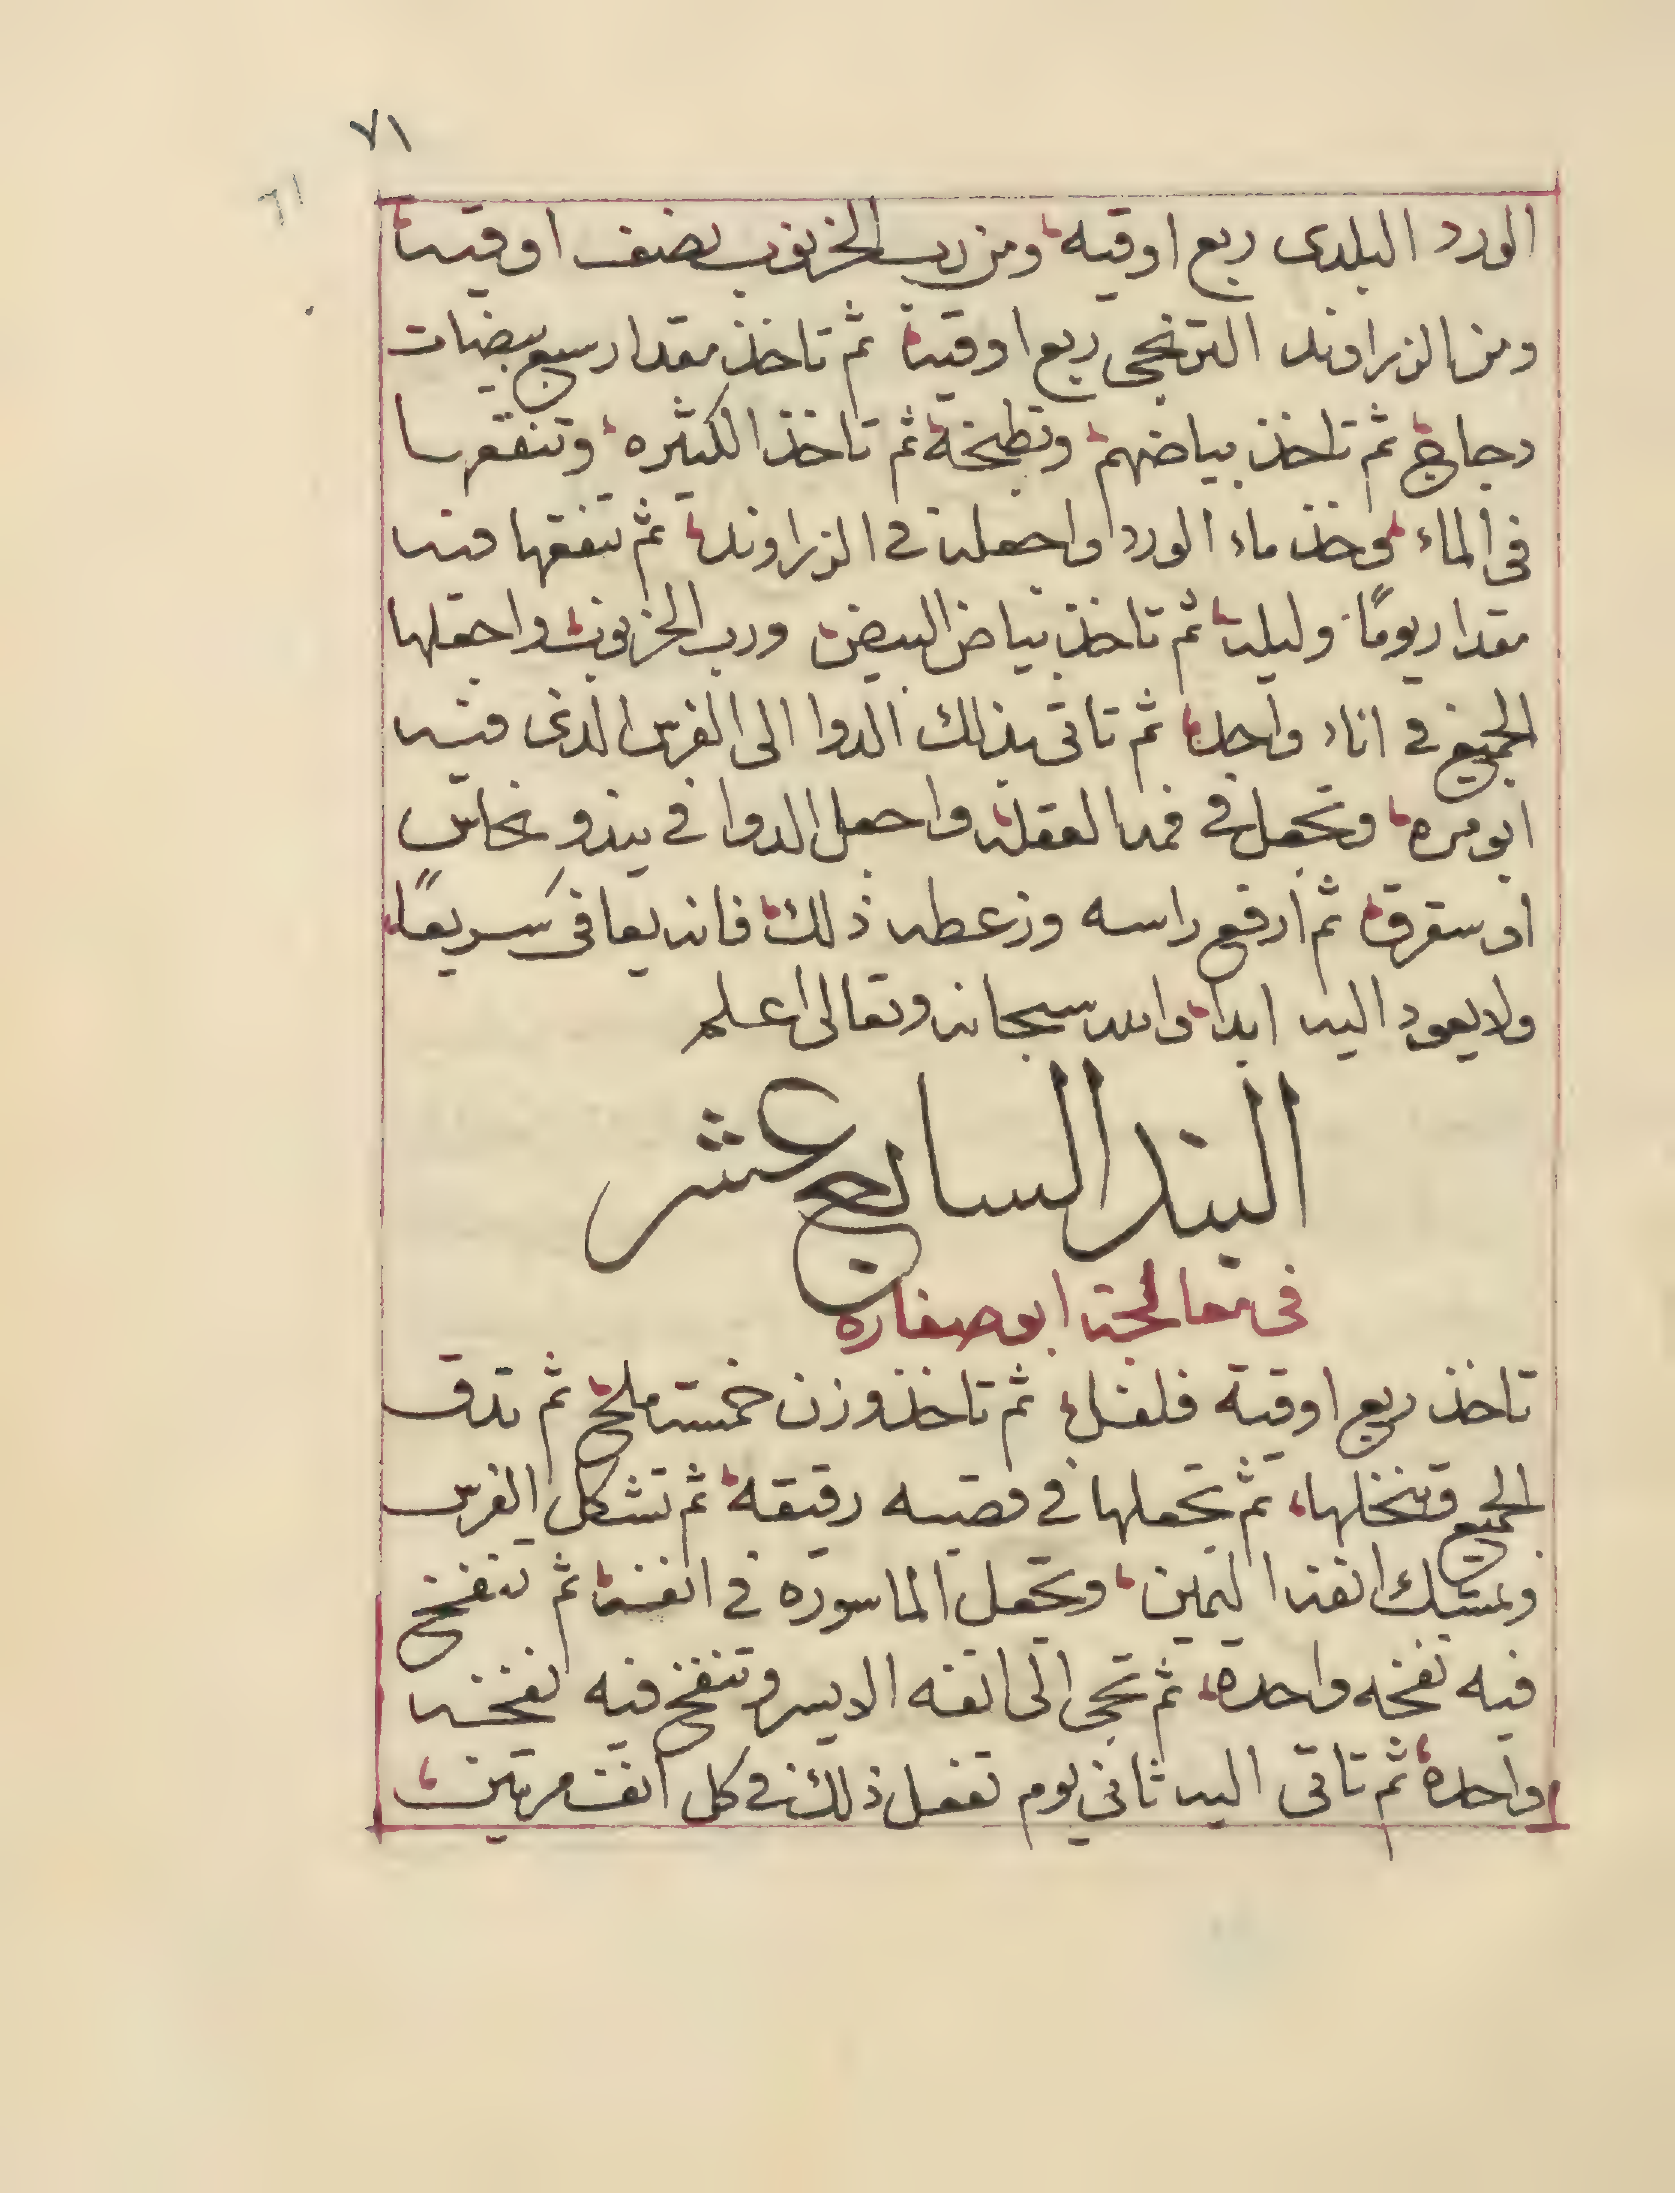 ٧١
٦١
الورد البلدى ربع اوقيه ومن رب الخرنوب نصف اوقيه
ومن الزراوند الترنجى ربع اوقيه ثم تاخذ مقدار سبع بيضات
دجاج ثم تاخذ بياضهم وتطبخة ثم تاخذ الكثيره وتنقعها
فى الماء وخذ ماء الورد واجعله فى الزراوند ثم تنقعها فيه
مقدار يومًا وليله ثم تاخذ بياض البيض ورب الخرنوب واجعلها
الجميع فى اناء واحد ثم تاتى بذلك الدوا الى الفرس الذى فيه
ابو مره وتجعل فى فمه العقله واجعل الدوا فى نحاس
او ثم ارفع راسه وزعطه ذلك فانه يعافى سريعًا
ولا يعود اليه ابدا والله سبحانه وتعالى اعلم
البند السابع عشر
فى معالجة ابو صفاره
تاخذ ربع اوقية فلفل ثم تاخذ وزن خمسه ملح ثم تدق
الجميع وتنخلها ثم تجعلها فى قصبه رقيقه ثم تشكل الفرس
وتمسك انفه اليمين وتجعل الماسوره فى انفه ثم تنفخ
فيه نفخه واحدة ثم تجى الى انفه الايسر وتنفخ فيه نفخه
واحدة ثم تاتى اليه ثانى يوم تفعل ذلك فى كل انف مرتين